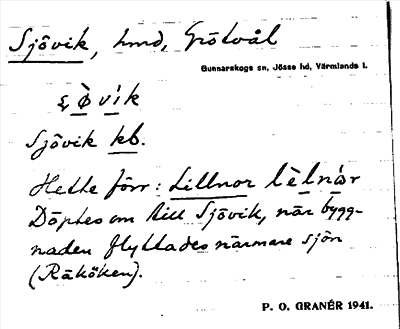 Sjövik, hmd, Grötvål
Gunnarskogs sn, Jösse hd, Värmlands l.
Sjövik kb.
Hette förr: Lillnor
Döptes om till Sjövik, när bygg-
naden flyttades närmare sjön
(Räköken).
P. O. GRANÉR 1941.